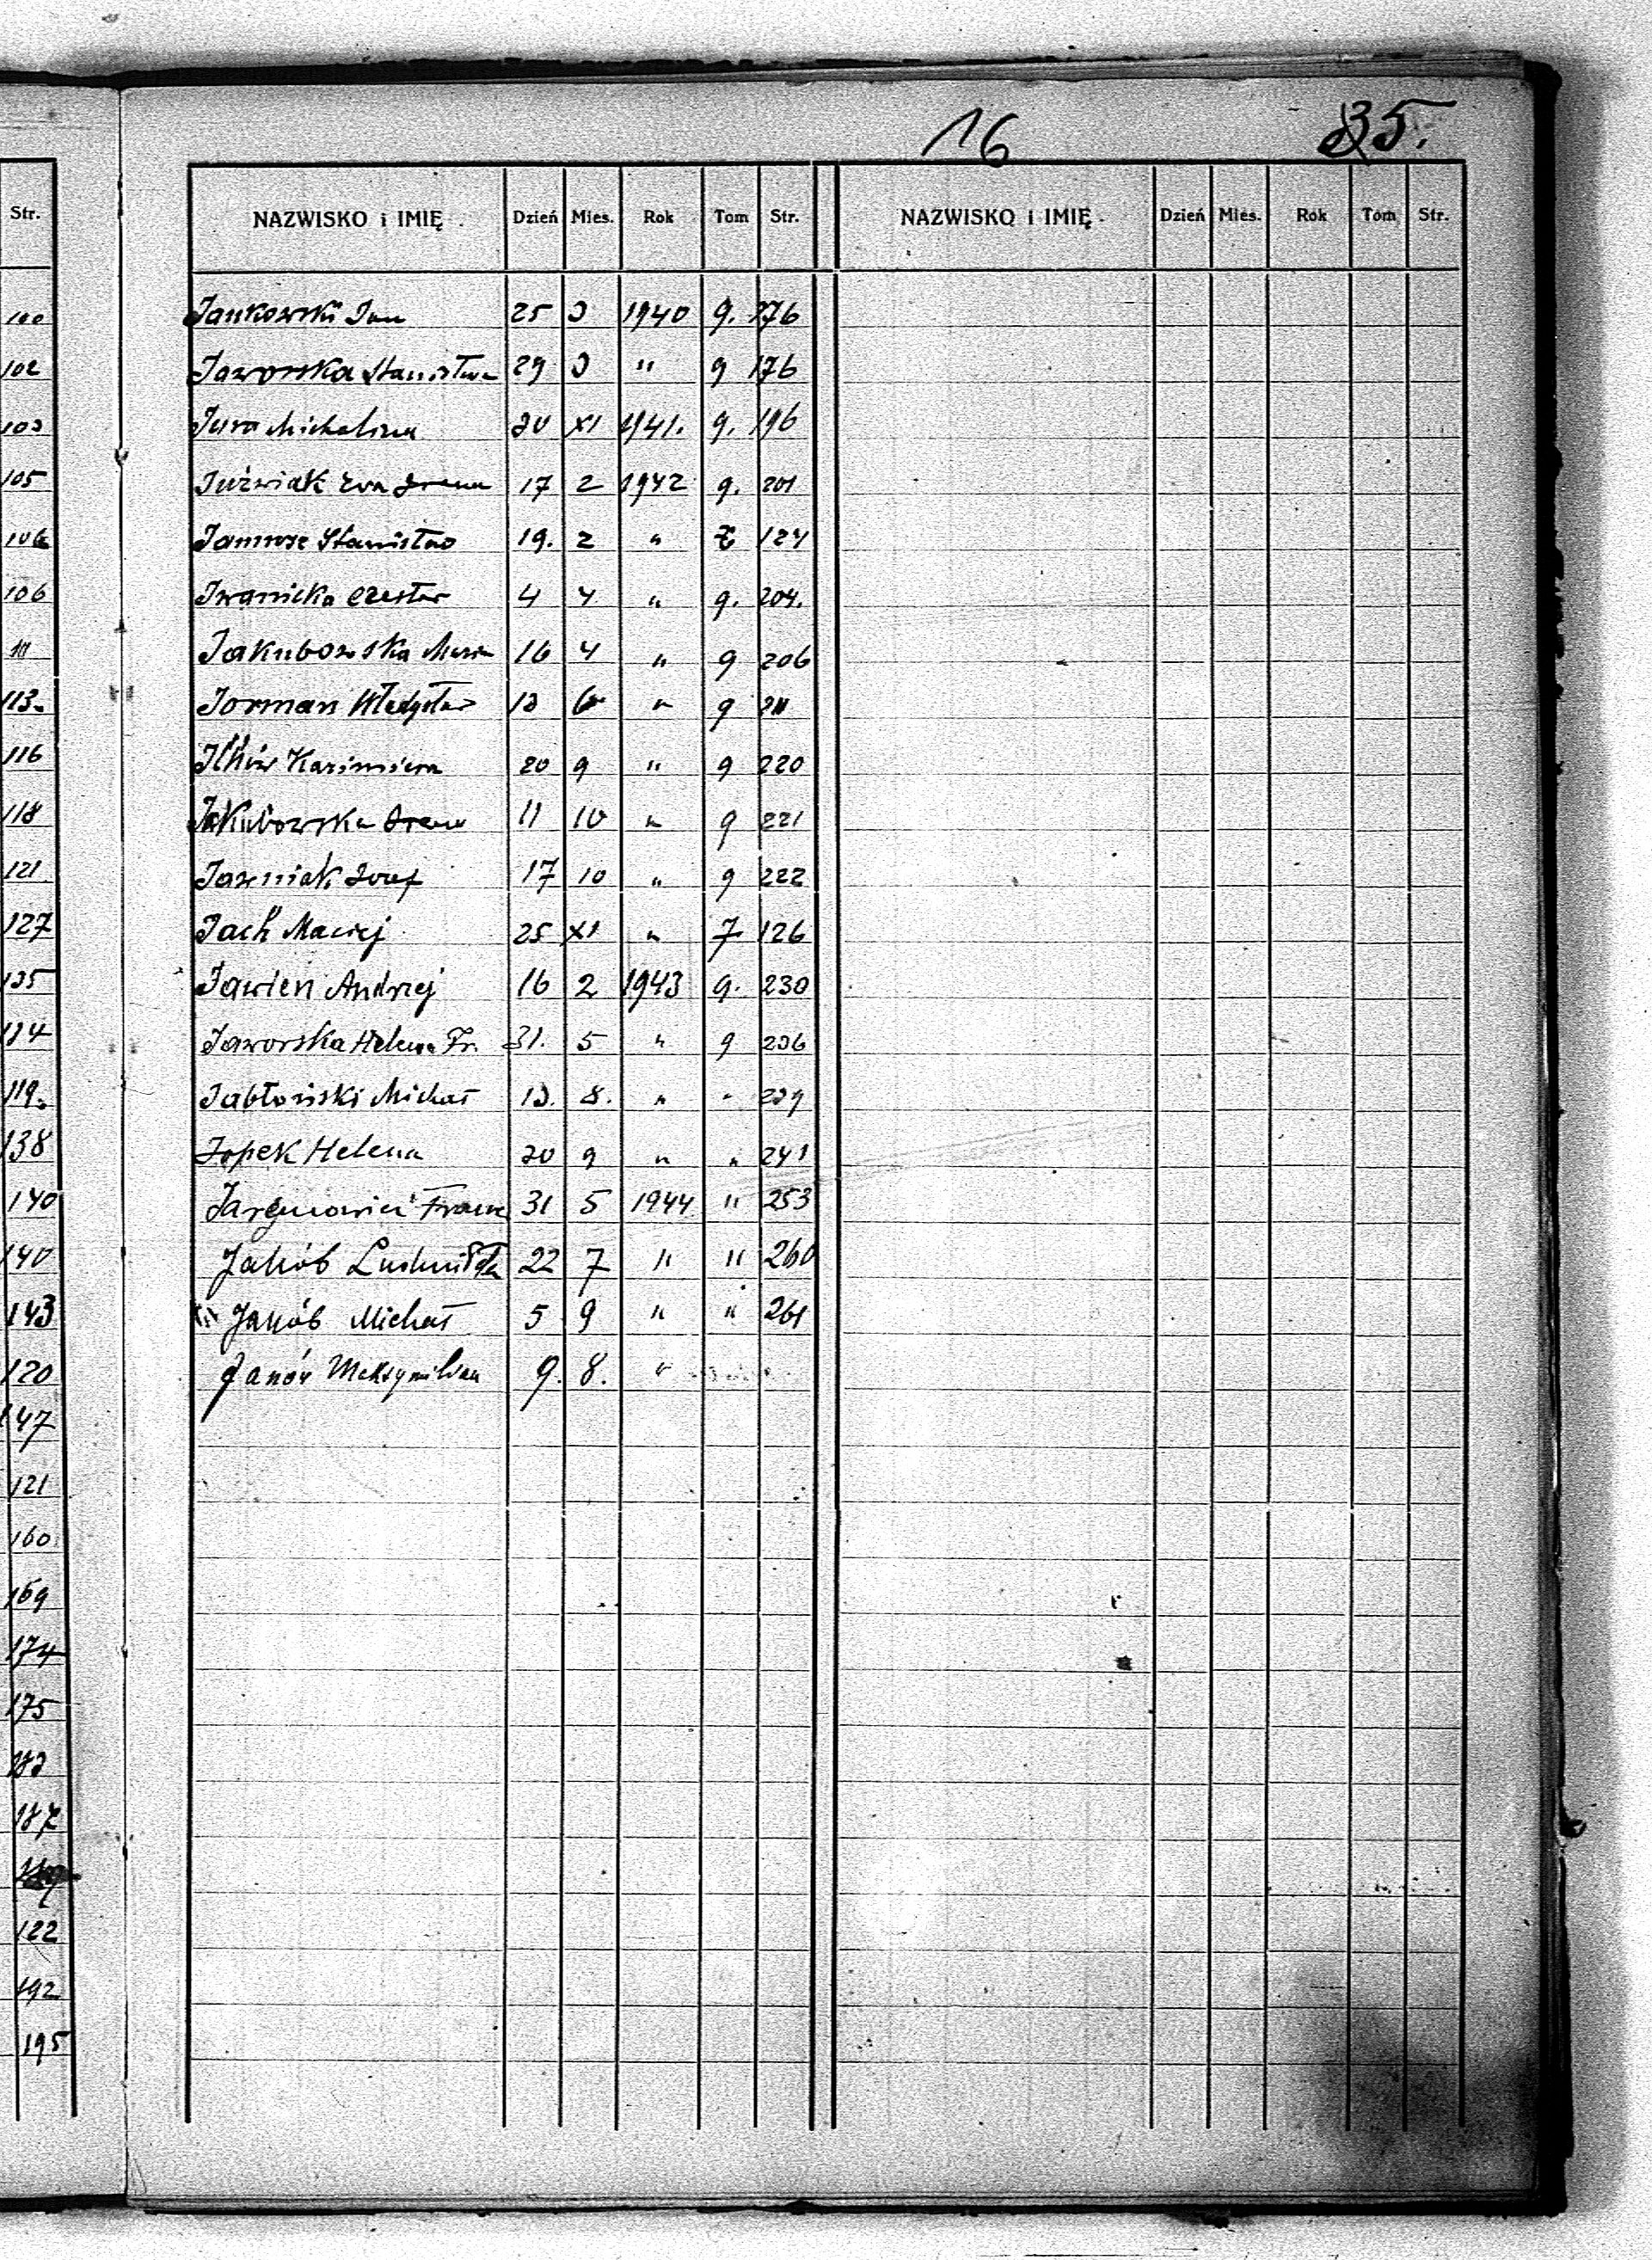 16
35.
Str.
NAZWISKO i IMIĘ Dzień Mies. Rok Tom Str. NAZWISKO i IMIĘ Dzień Mies. Rok Tom Str.
100 Jankowski Jan 25 3 1940 9. 176
102 Jaworska Stanisława 29 3 " 9 176
103 Jura Michalina 30 XI 1941. 9. 196
105 Juźwiak Ewa Irena 17 2 1942 9. 201
106 Stanisław 19. 2 " 124
106 Iwanicka Czesław 4 4 " 9. 204.
111 Jakubowska Maria 16 4 " 9 206
113. Jorman Władysław 13 6 " 9 211
116 Kazimiera 20 9 " 9 220
118 Jakubowska Irena 11 10 " 9 221
121 Józef 17 10 " 9 222
127 Jach Maciej 25 XI " 7 126
135 Jawień Andrzej 16 2 1943 9. 230
134 Jaworska Helena Fr. 31. 5 " 9 236
119. Jabłoński Michał 13. 8. " " 239
138 Jopek Helena 20 9 " " 241
140 31 5 1944 " 253
140 Jakób Ludmiła 22 7 " " 260
143 Jakób Michał 5 9 " " 261
120 Janów Maksymilian 9. 8. "
147
121
160
169
174
175
183
187
122
192
195